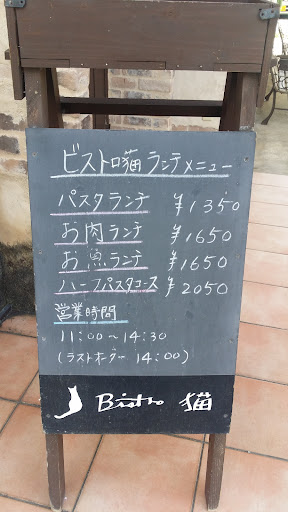 ビストロ猫 ランチメニュー
パスタランチ ¥1350
お肉ランチ ¥1650
お魚ランチ ¥1650
ハーフパスタコース ¥2050
営業時間
11:00～14:30
(ラストオーダー 14:00)
Bistro 猫